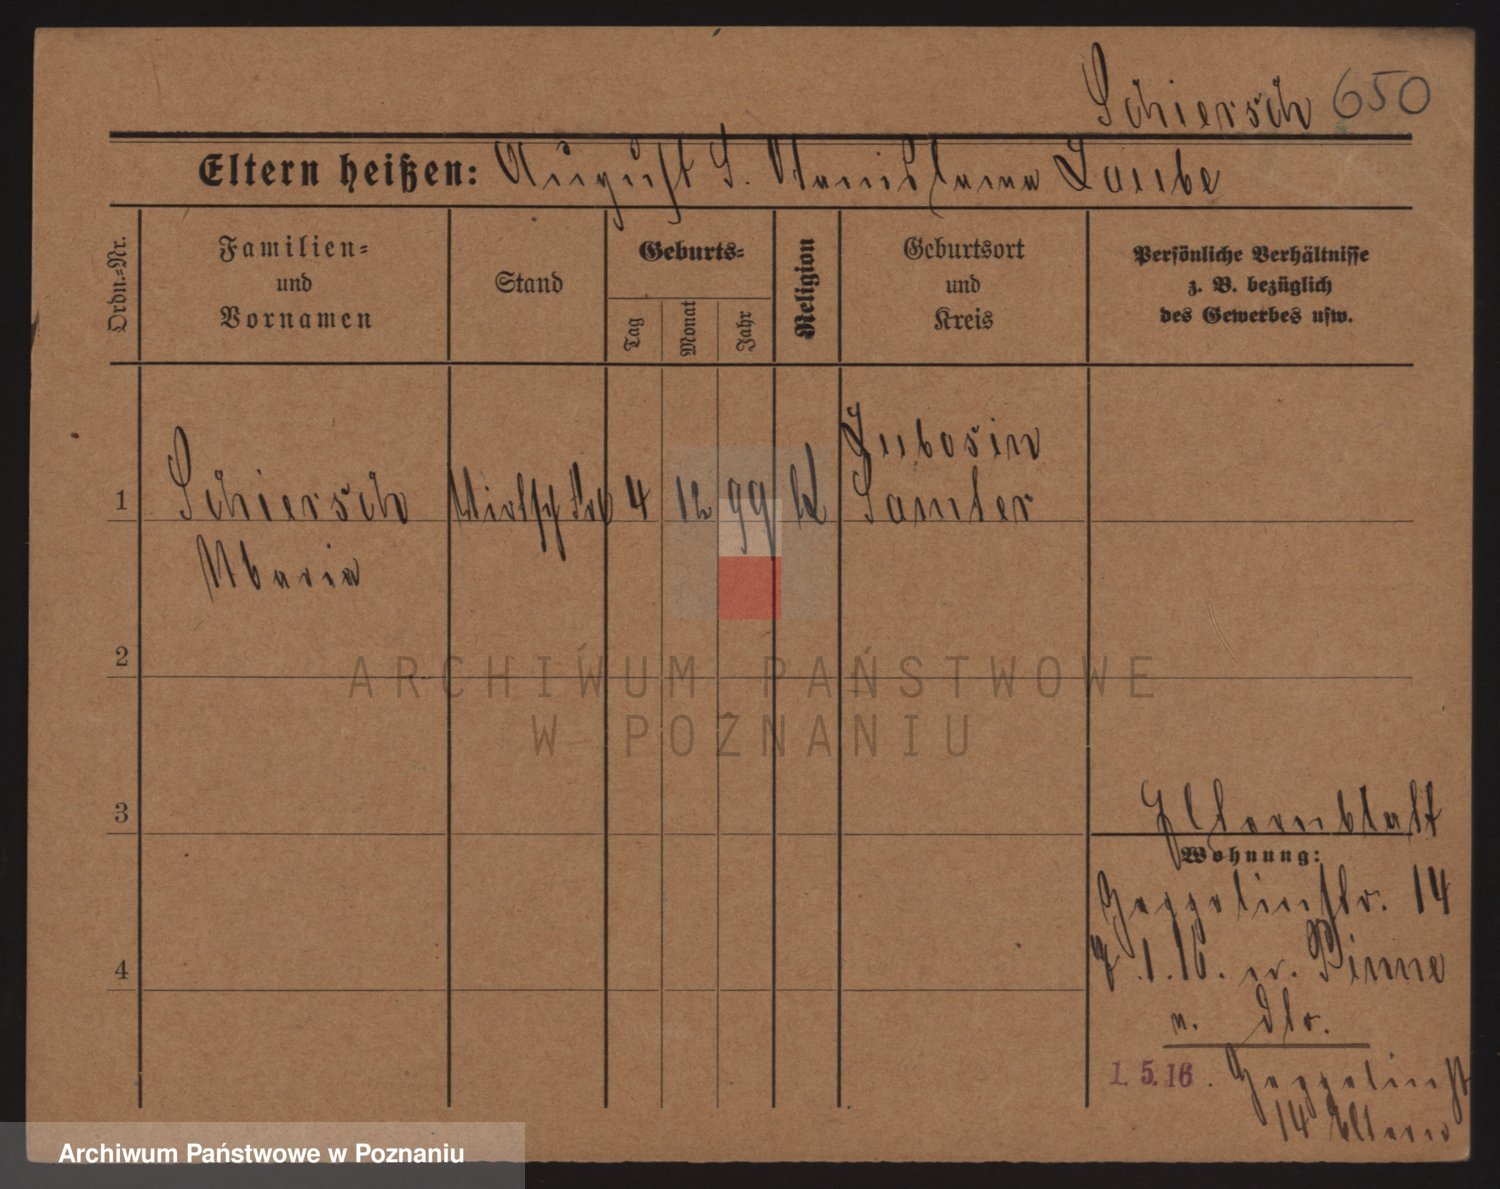 Schiersch 650
Eltern heißen: August S. Stanislawa Laube
Ordn.-Nr.
Familien-
und
Vornamen
Stand
Geburts-
Tag
Monat
Jahr
Religion
Geburtsort
und
Kreis
Persönliche Verhältnisse
z. B. bezüglich
des Gewerbes usw.
1
Schiersch
Maria
4
12
99
k
Lubosin
Samter
2
ARCHIWUM PAŃSTWOWE
W POZNANIU
3
Elternblatt
Wohnung:
4
Zeppelinstr. 14
1.16. Pinne
n.
1.5.16. Zeppelinst
14 Eltern
Archiwum Państwowe w Poznaniu